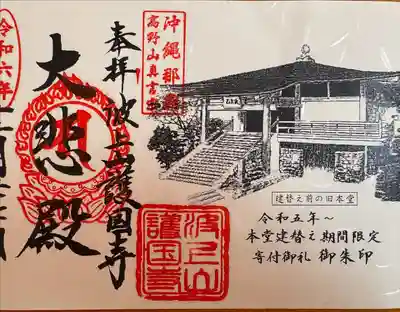 沖縄那覇
高野山真言宗
奉拝
波上山護国寺
大悲殿
令和六年
建替え前の旧本堂
令和五年~
本堂建替え期間限定
寄付御礼 御朱印
波上山
護国寺